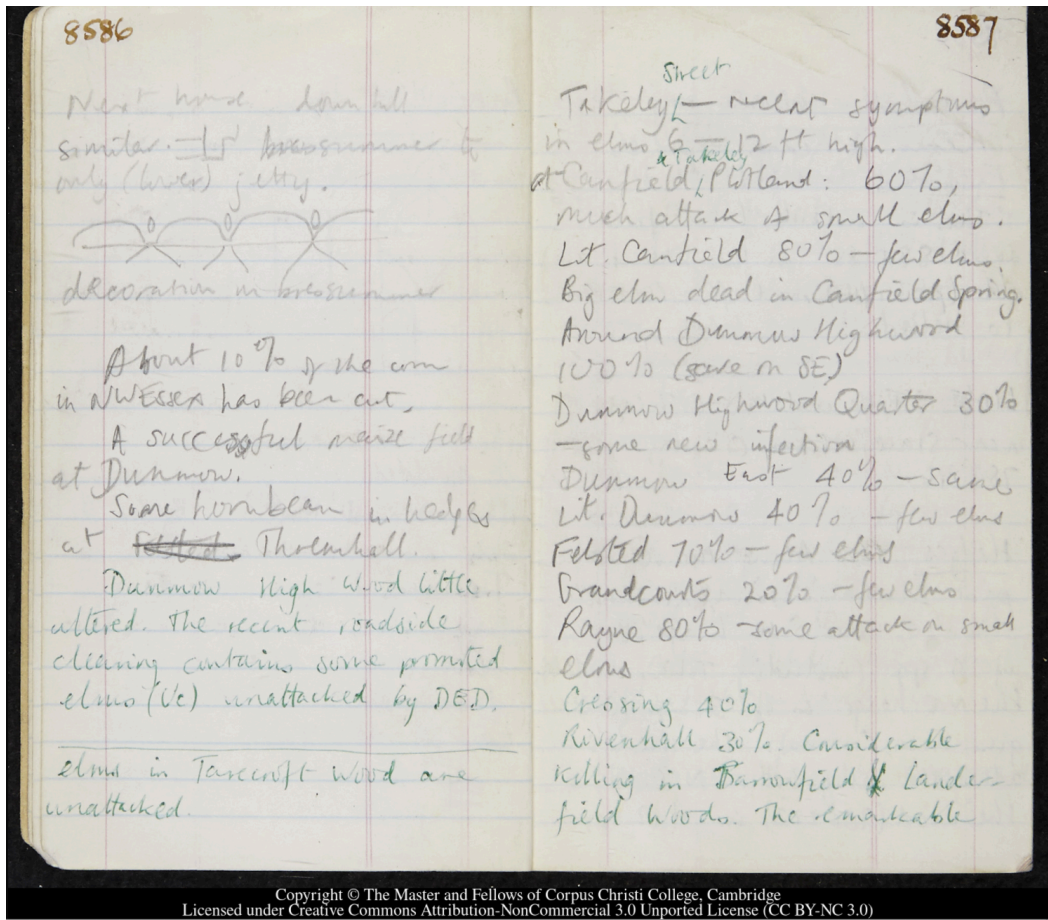 8586
Next house downhill
similar. bressummer &
only (lower) jetty.
decoration in bressummer
About 10% of the corn
in NW Essex has been cut.
A successful maize field
at Dunmow.
Some hornbeam in hedges
at Felsted. Thremhall.
Dunmow High Wood little
altered. The recent roadside
clearing contains some promoted
elms (Uc) unattacked by DED.
elms in Tarecroft Wood are
unattacked.
8587
Street
Takeley — recent symptoms
in elms 6 — 12 ft high.
& Takeley
Gt Canfield, Pl: 60%,
much attack of small elms.
Lit. Canfield 80% — few elms.
Big elm dead in Canfield Spring.
Around Dunmow Highwood
100% (save on SE)
Dunmow Highwood Quarter 30%
— some new infection
Dunmow East 40% — same
Lit. Dunmow 40% — few elms
Felsted 70% — few elms
Grandcourts 20% — few elms
Rayne 80% — some attack on small
elms
Cressing 40%
Rivenhall 30%. Considerable
killing in Barrowfield & Lander-
field Woods. The remarkable
Copyright © The Master and Fellows of Corpus Christi College, Cambridge
Licensed under Creative Commons Attribution-NonCommercial 3.0 Unported License (CC BY-NC 3.0)